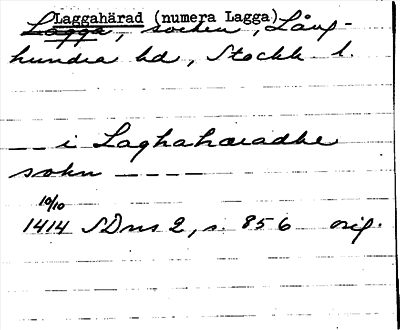 Laggahärad (numera Lagga)
Lagga, socken, Lång-
hundra hd, Stockh. l.
— — i Laghahæradhe
sokn — — — —
10/10
1414 SDns 2, s. 856 orig.